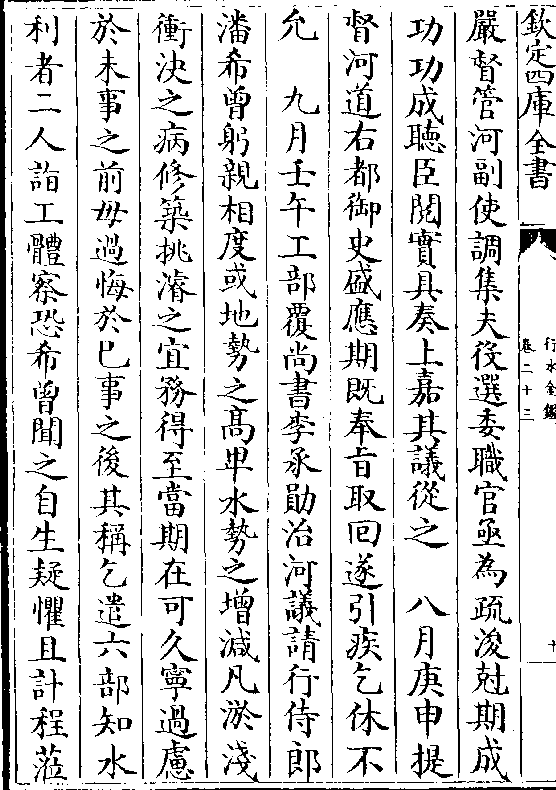 欽定四庫全書
行水金鑑
卷二十三
十
嚴督管河副使調集夫役選委職官亟為疏浚尅期成
功功成聽臣閱實具奏上嘉其議從之　八月庚申提
督河道右都御史盛應期既奉旨取回遂引疾乞休不
允　九月壬午工部覆尚書李承勛治河議請行侍郎
潘希曾躬親相度或地勢之高卑水勢之增減凡淤淺
衝決之病修築挑濬之宜務得至當期在可久寧過慮
於未事之前毋過悔於已事之後其稱乞遣六部知水
利者二人詣工體察恐希曾聞之自生疑懼且計程蒞